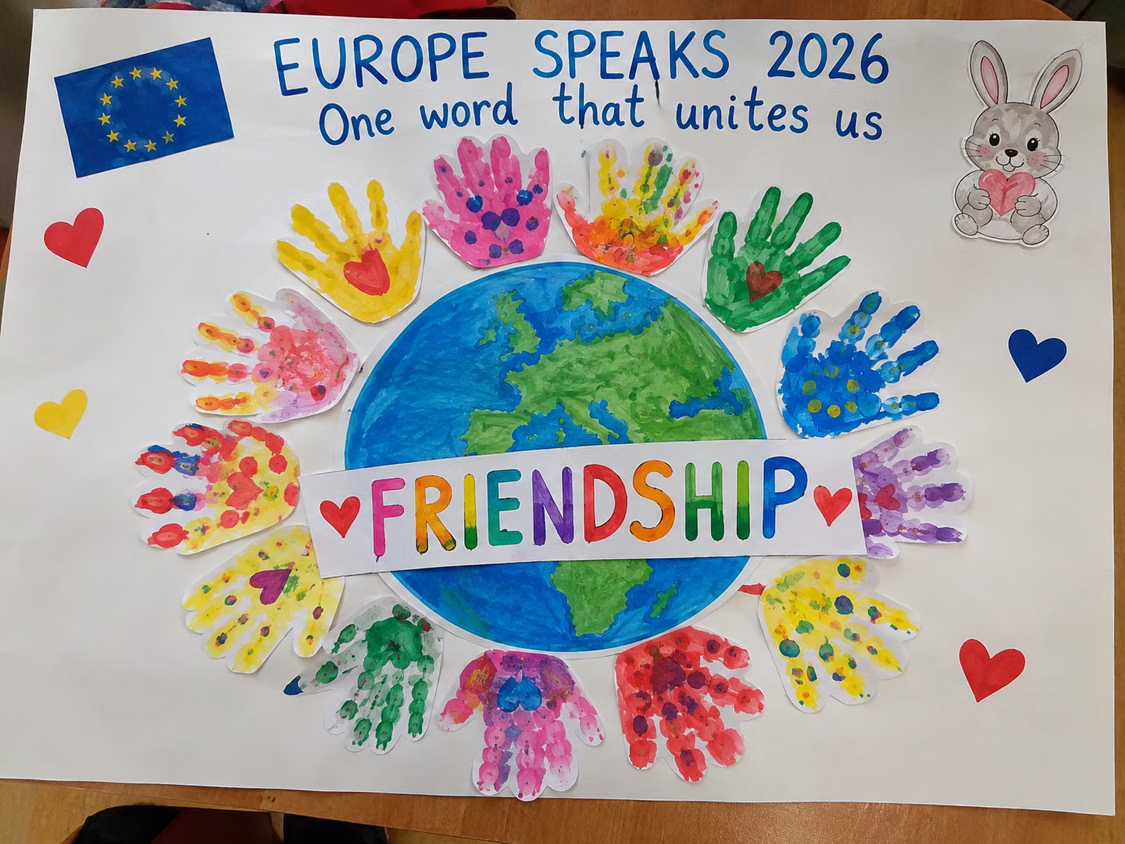 EUROPE SPEAKS 2026
One word that unites us
FRIENDSHIP